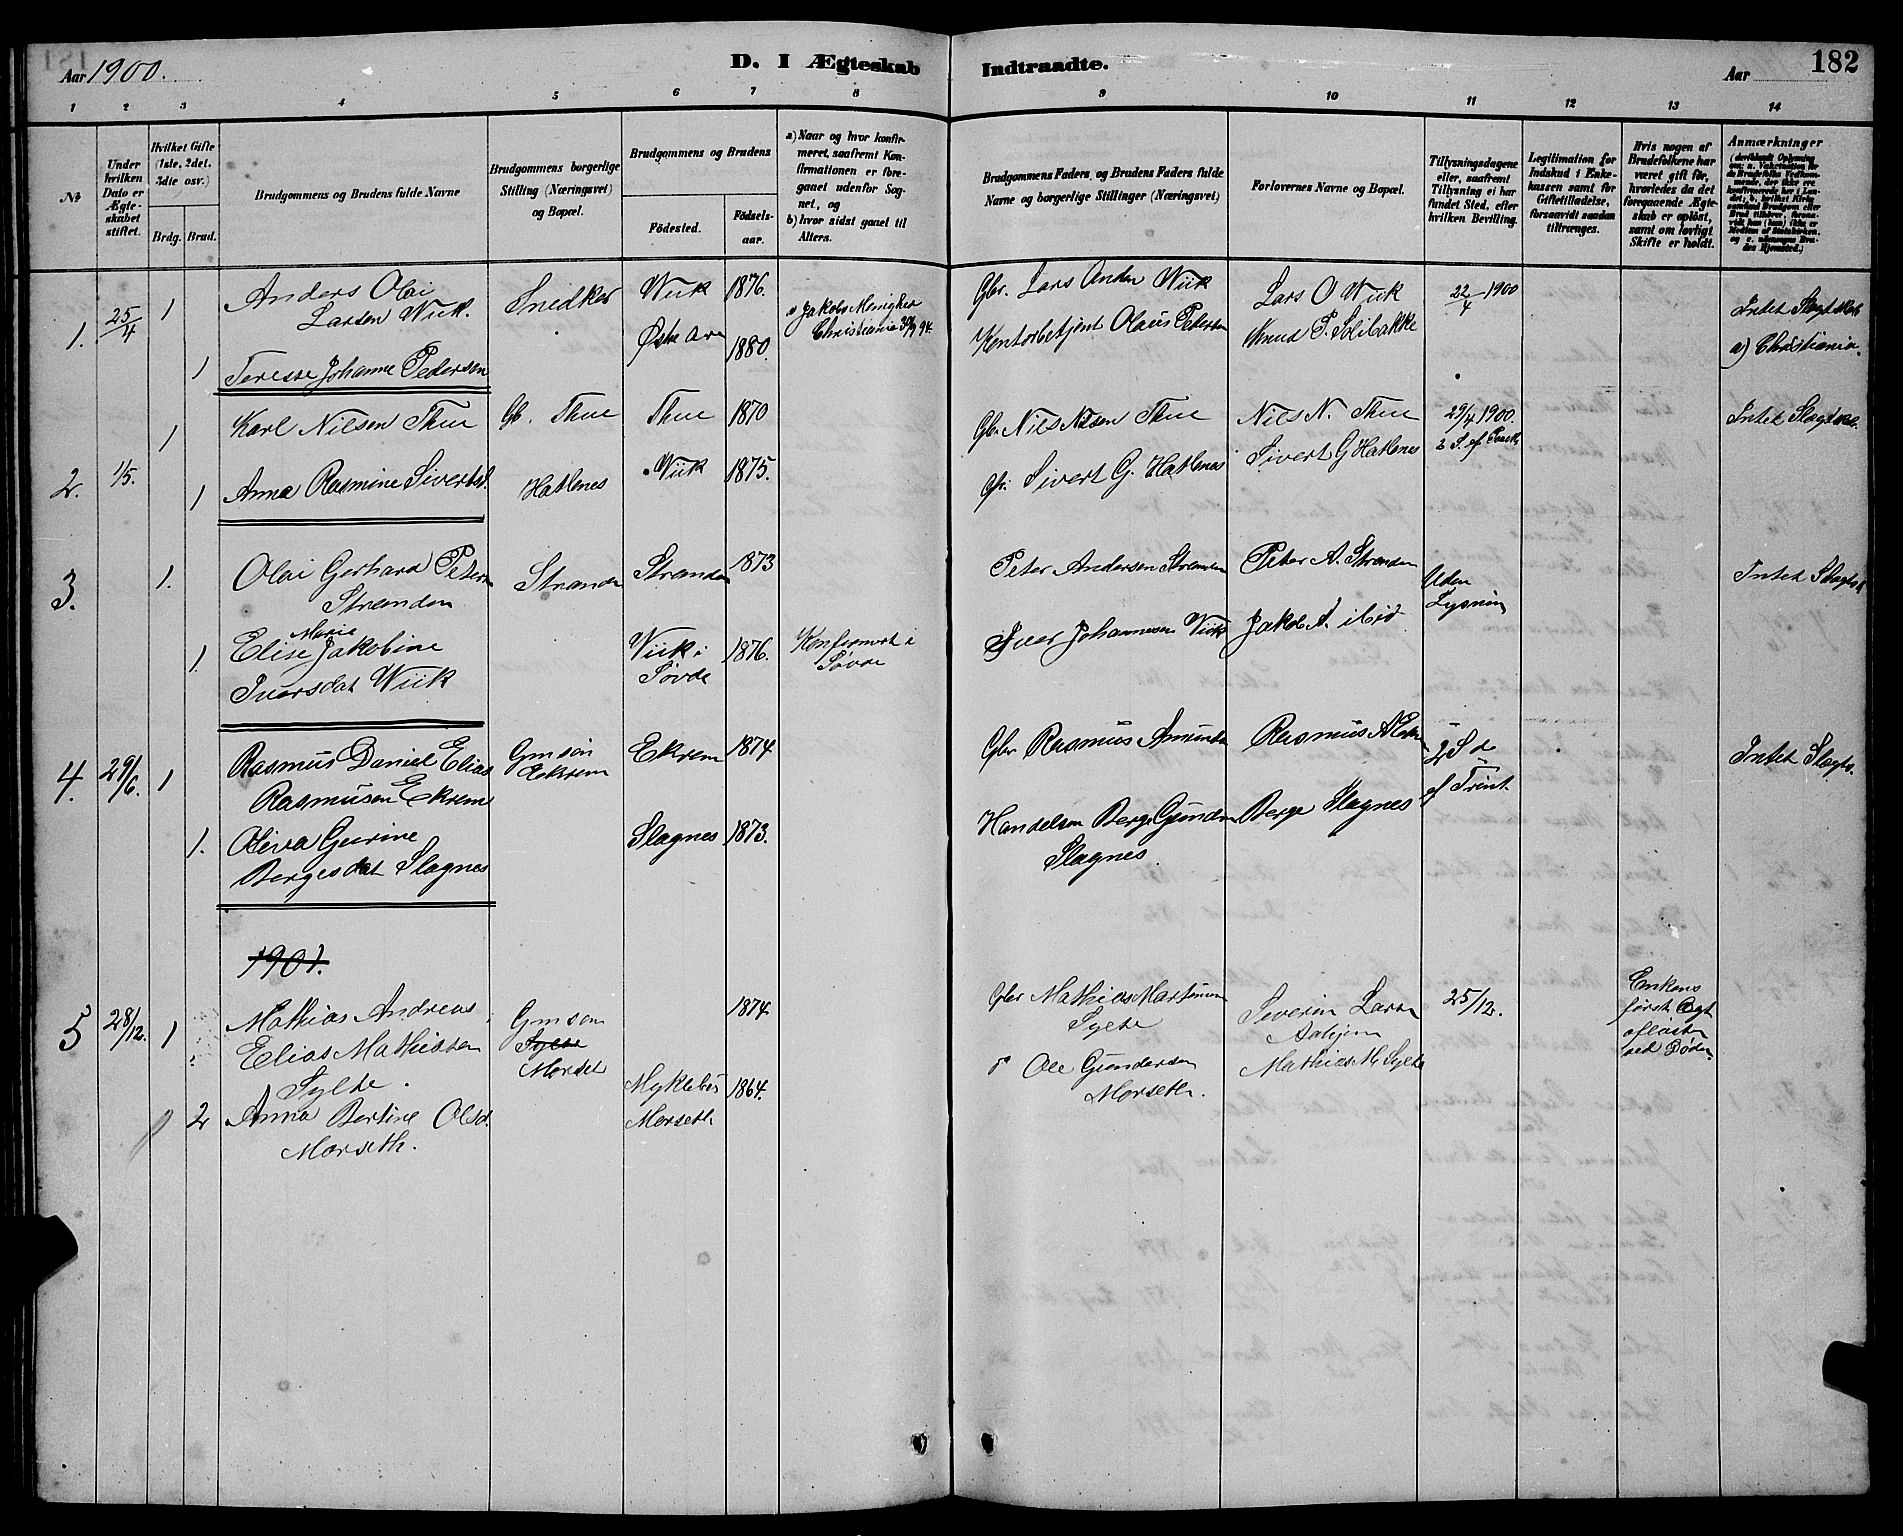 Aar 1900. D. I Ægteskab Indtraadte. Aar 182
1 2 3 4 5 6 7 8 9 10 11 12 13 14
No
Under hvilken Dato er Ægteskabet stiftet.
Hvilket Gifte (1ste, 2det, 3die osv.)
Brdg. Brud.
Brudgommens og Brudens fulde Navne
Brudgommens borgerlige Stilling (Næringsvei) og Bopæl.
Brudgommens og Brudens
Fødested. Fødselsaar.
a) Naar og hvor konfirmeret, saafremt Konfirmationen er foregaaet udenfor Sognet, og
b) hvor sidst gaaet til Alters.
Brudgommens Faders og Brudens Faders fulde Navne og borgerlige Stillinger (Næringsvei)
Forlovernes Navne og Bopæl.
Tillysningsdagene eller, saafremt Tillysning ei har fundet Sted, efter hvilken Bevilling.
Legitimation for Indskud i Enkekassen samt for Giftetilladelse, forsaavidt saadan tiltrænges.
Hvis nogen af Brudefolkene har været gift før, hvorledes da det foregaaende Ægteskab er opløst, samt om lovligt Skifte er holdt.
Anmærkninger
1. 25/4 1 Anders Olai Larsen Wiik. Snidker Wiik 1876. Gbr. Lars Andr Wiik Lars O Wiik 22/4 1900 Intet Slagtskab
1 Teresse Johanne Pedersen 1880. a) Jakobs Menighed Christiania Kontorbetjent Olaus Pedersen Knud P. Solibakke a) Christiania.
2. 1/5. 1 Karl Nilsen Thue Gb. Thue Thue 1870 Gbr. Nils Nilsen Thue Nils N. Thue 29/4 1900. 2 S. ef Paask Intet Slagtskab.
1 Anna Rasmine Sivertsd. Hatlenes Wiik 1875. Gbr. Sivert G. Hatlenes Sivert G Hatlenes
3. 1. Olai Gerhard Petersn Stranden Stranden Stranden 1873 Peter Andersen Stranden Peter A. Stranden Uden Lysning Intet Slagts
1. Elise Marie Jakobine Iversdat Wiik Wiik i Søvde 1876. Konfirmert i Søvde Iver Johannesen Wiik Jakob A. ibid
4. 29/6. 1 Rasmus Daniel Elias Rasmusen Ekrem Gmsøn Ekrem Ekrem 1874 Gbr Rasmus Amunds Rasmus A Ekr 2 S d ef Trint. Intet Slagts.
1. Oliva Gurine Bergesdat Slagnes Slagnes 1873. Handelsm Berge Gundrn Slagnes Berge Slagnes
1901.
5 28/12. 1 Mathias Andreas Elias Mathissen Sylte. Gmsøn Sylte Morset 1874 Gbr Mathias Martinun Sylte Severin Larsn Aahjem 25/12. Enkens første Ægt opløst ved Døden
2 Anna Bertine Olsd. Morseth. Myklebus Morseth 1864. Ole Gundersen Morseth. Mathias M Sylte